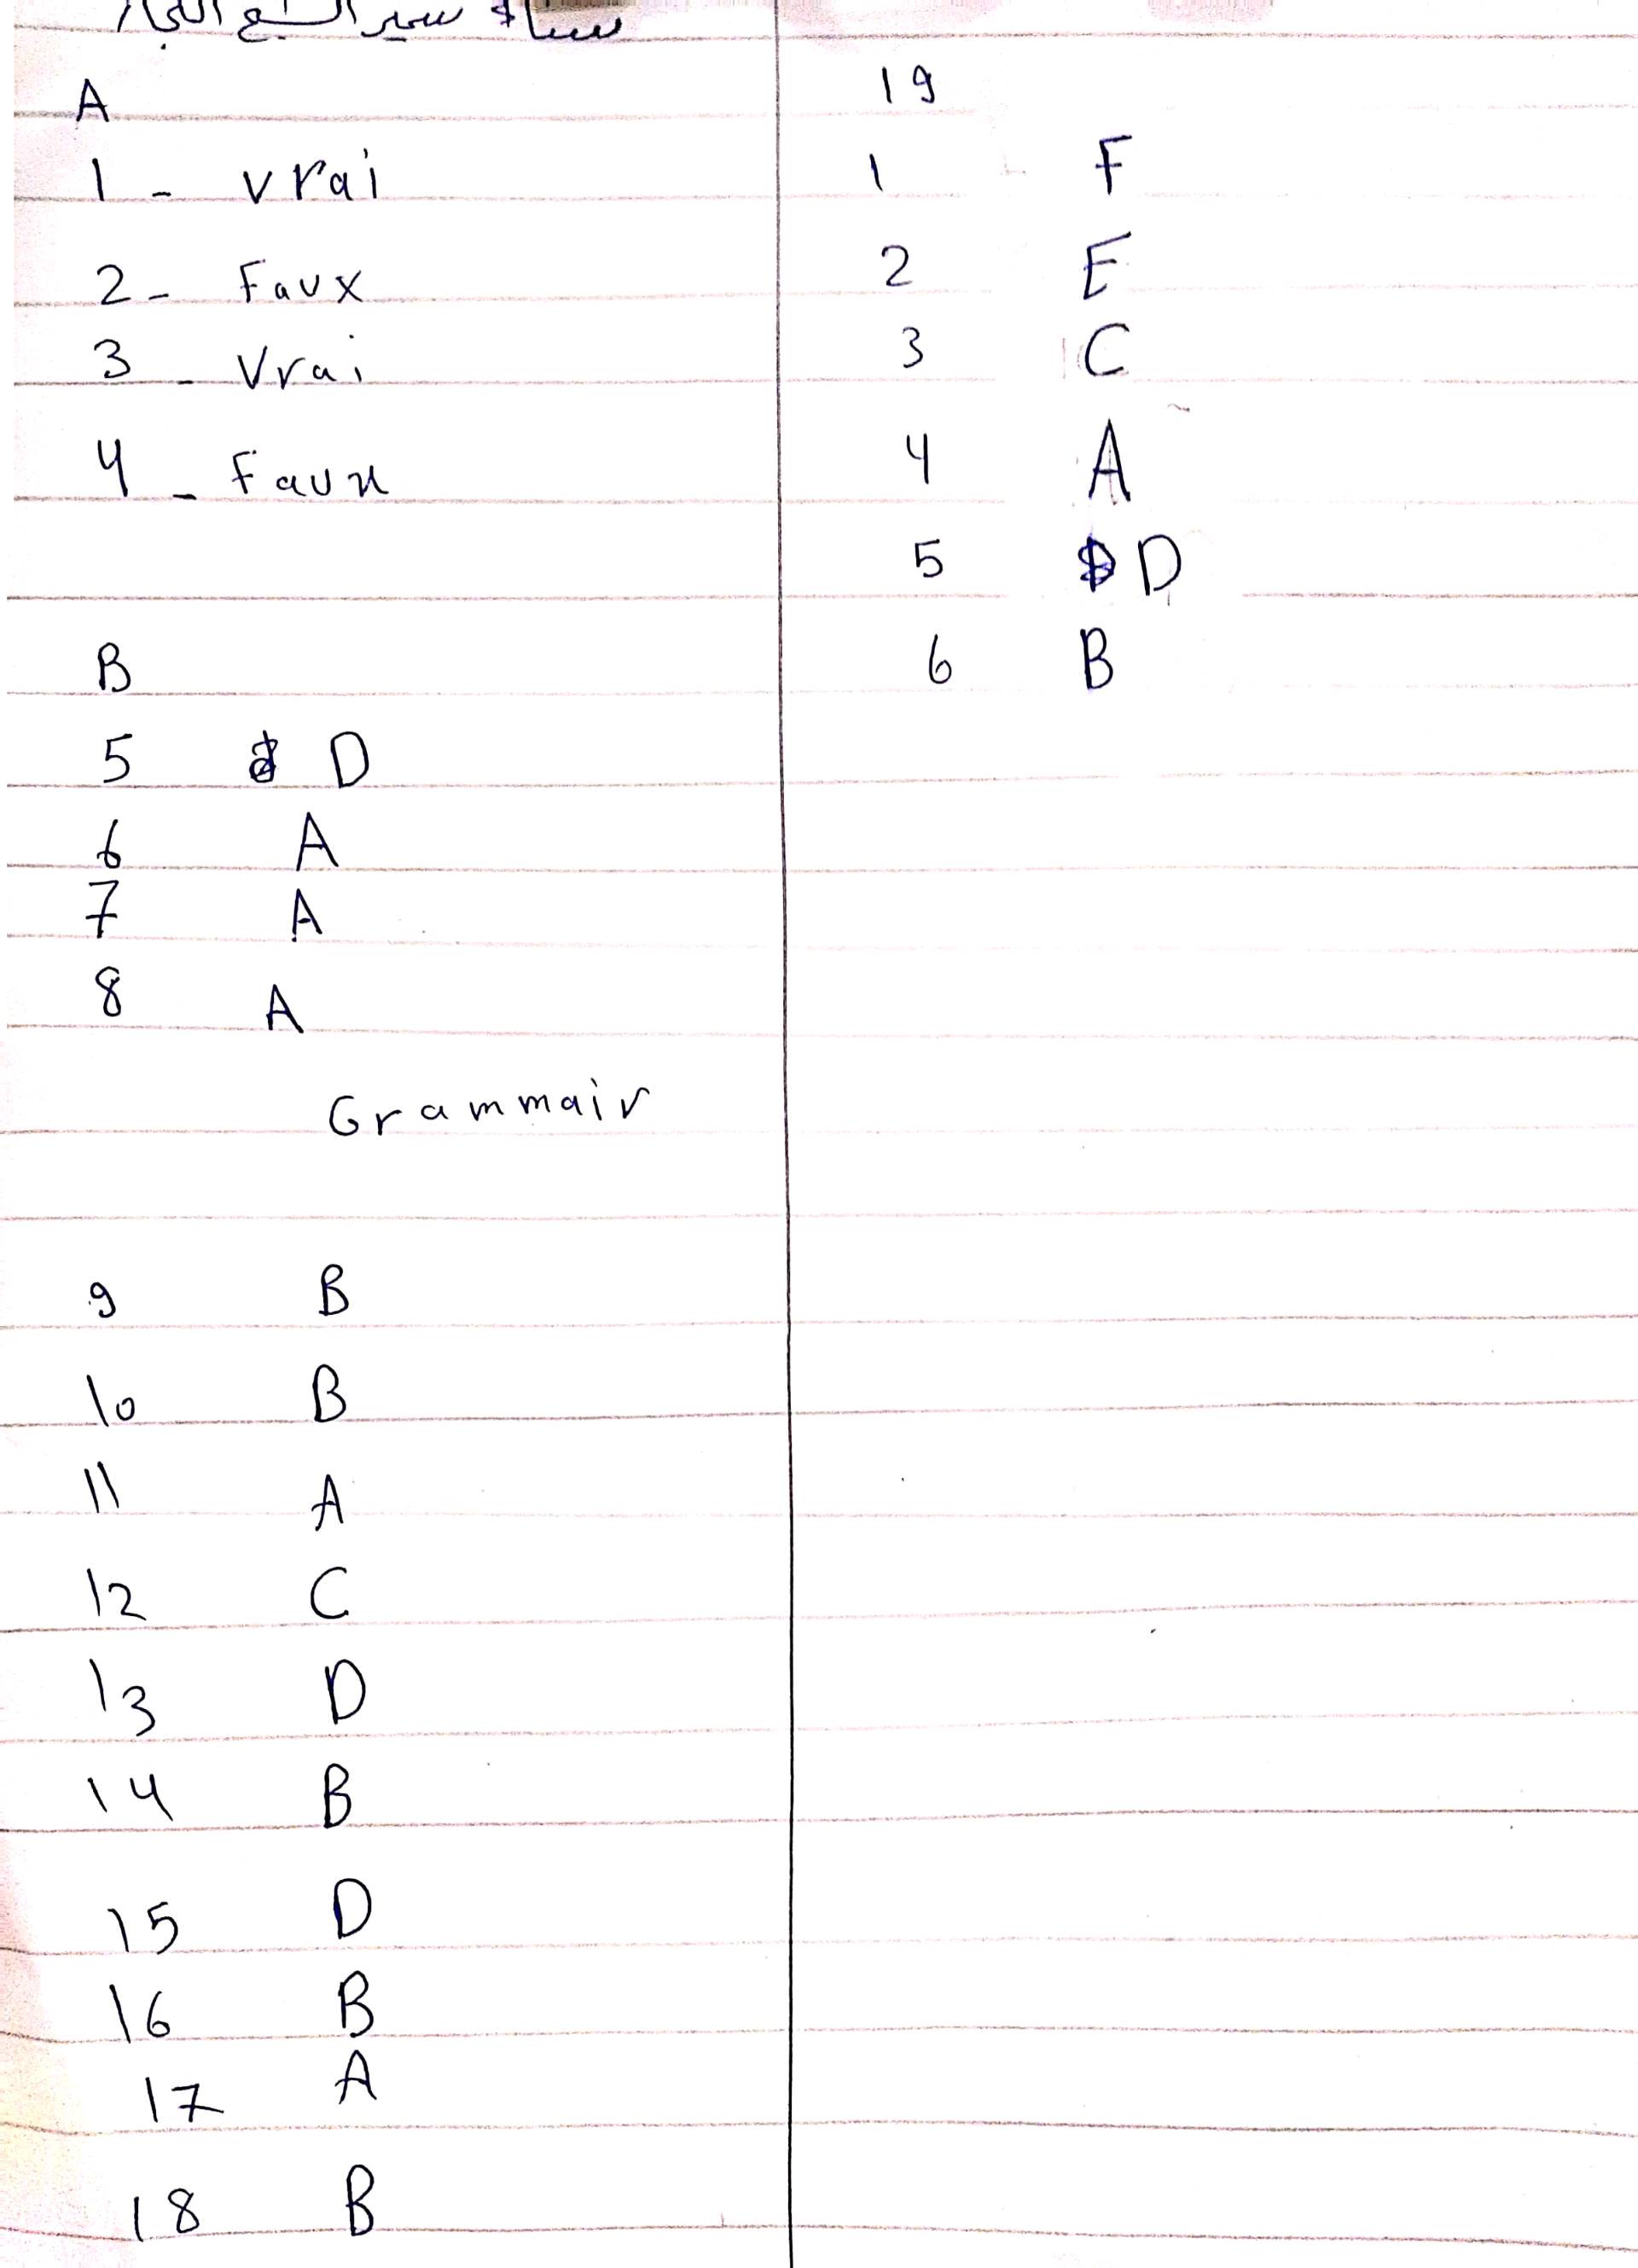 سمير السبع
A
1 - vrai
2 - Faux
3 - Vrai
4 - Faux
B
5 D
6 A
7 A
8 A
Grammair
9 B
10 B
11 A
12 C
13 D
14 B
15 D
16 B
17 A
18 B
19
1 F
2 E
3 C
4 A
5 D
6 B